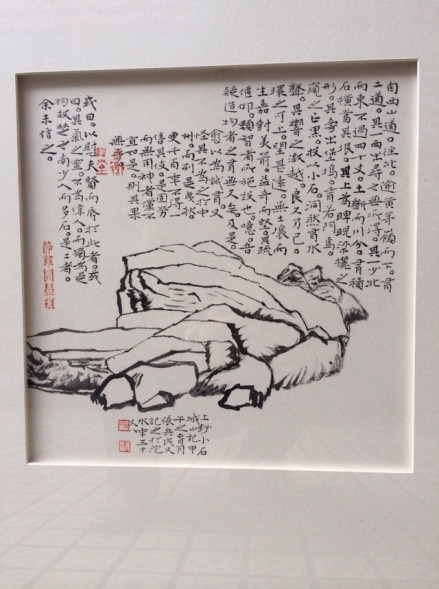 自西山道口徑北。逾黃茅嶺而下。有
二道。其一西出。尋之無所得。其一少北
而東。不過四十丈。土斷而川分。有積
石橫當其垠。其上為睥睨梁欐之
形。其旁出堡塢。有若門焉。
窺之正黑。投以小石。洞然有水
聲。其響之激越。良久乃已。
環之可上。望甚遠。無土壤而
生嘉樹美箭。益奇而堅。其疏
數偃仰。類智者所施設也。噫。吾
疑造物者之有無久矣。及是。
愈以為誠有。又
怪其不為之於中
州。而列是夷狄
更千百年不得一
售其伎。是固勞
而無用。神者儻不
宜如是。則其果
無乎
或曰。以慰夫賢而辱於此者。或
曰。其氣之靈。不為偉人。而獨為是
物。故楚之南少人而多石。是二者。
余未信之。
上鈔小石
城山記甲
午之春月
張兵民又
記之於沱
水時三十
又